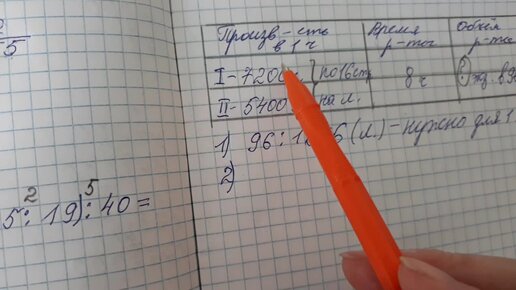 5
Произв-сть в 1 ч
Время р-ты
Объём р-ты
I-7200 } по 16 стр. 8 ч
II-5400 на л.
1) 96: 6(л.) - нужно для 1
2)
2 5
5: 19): 40=